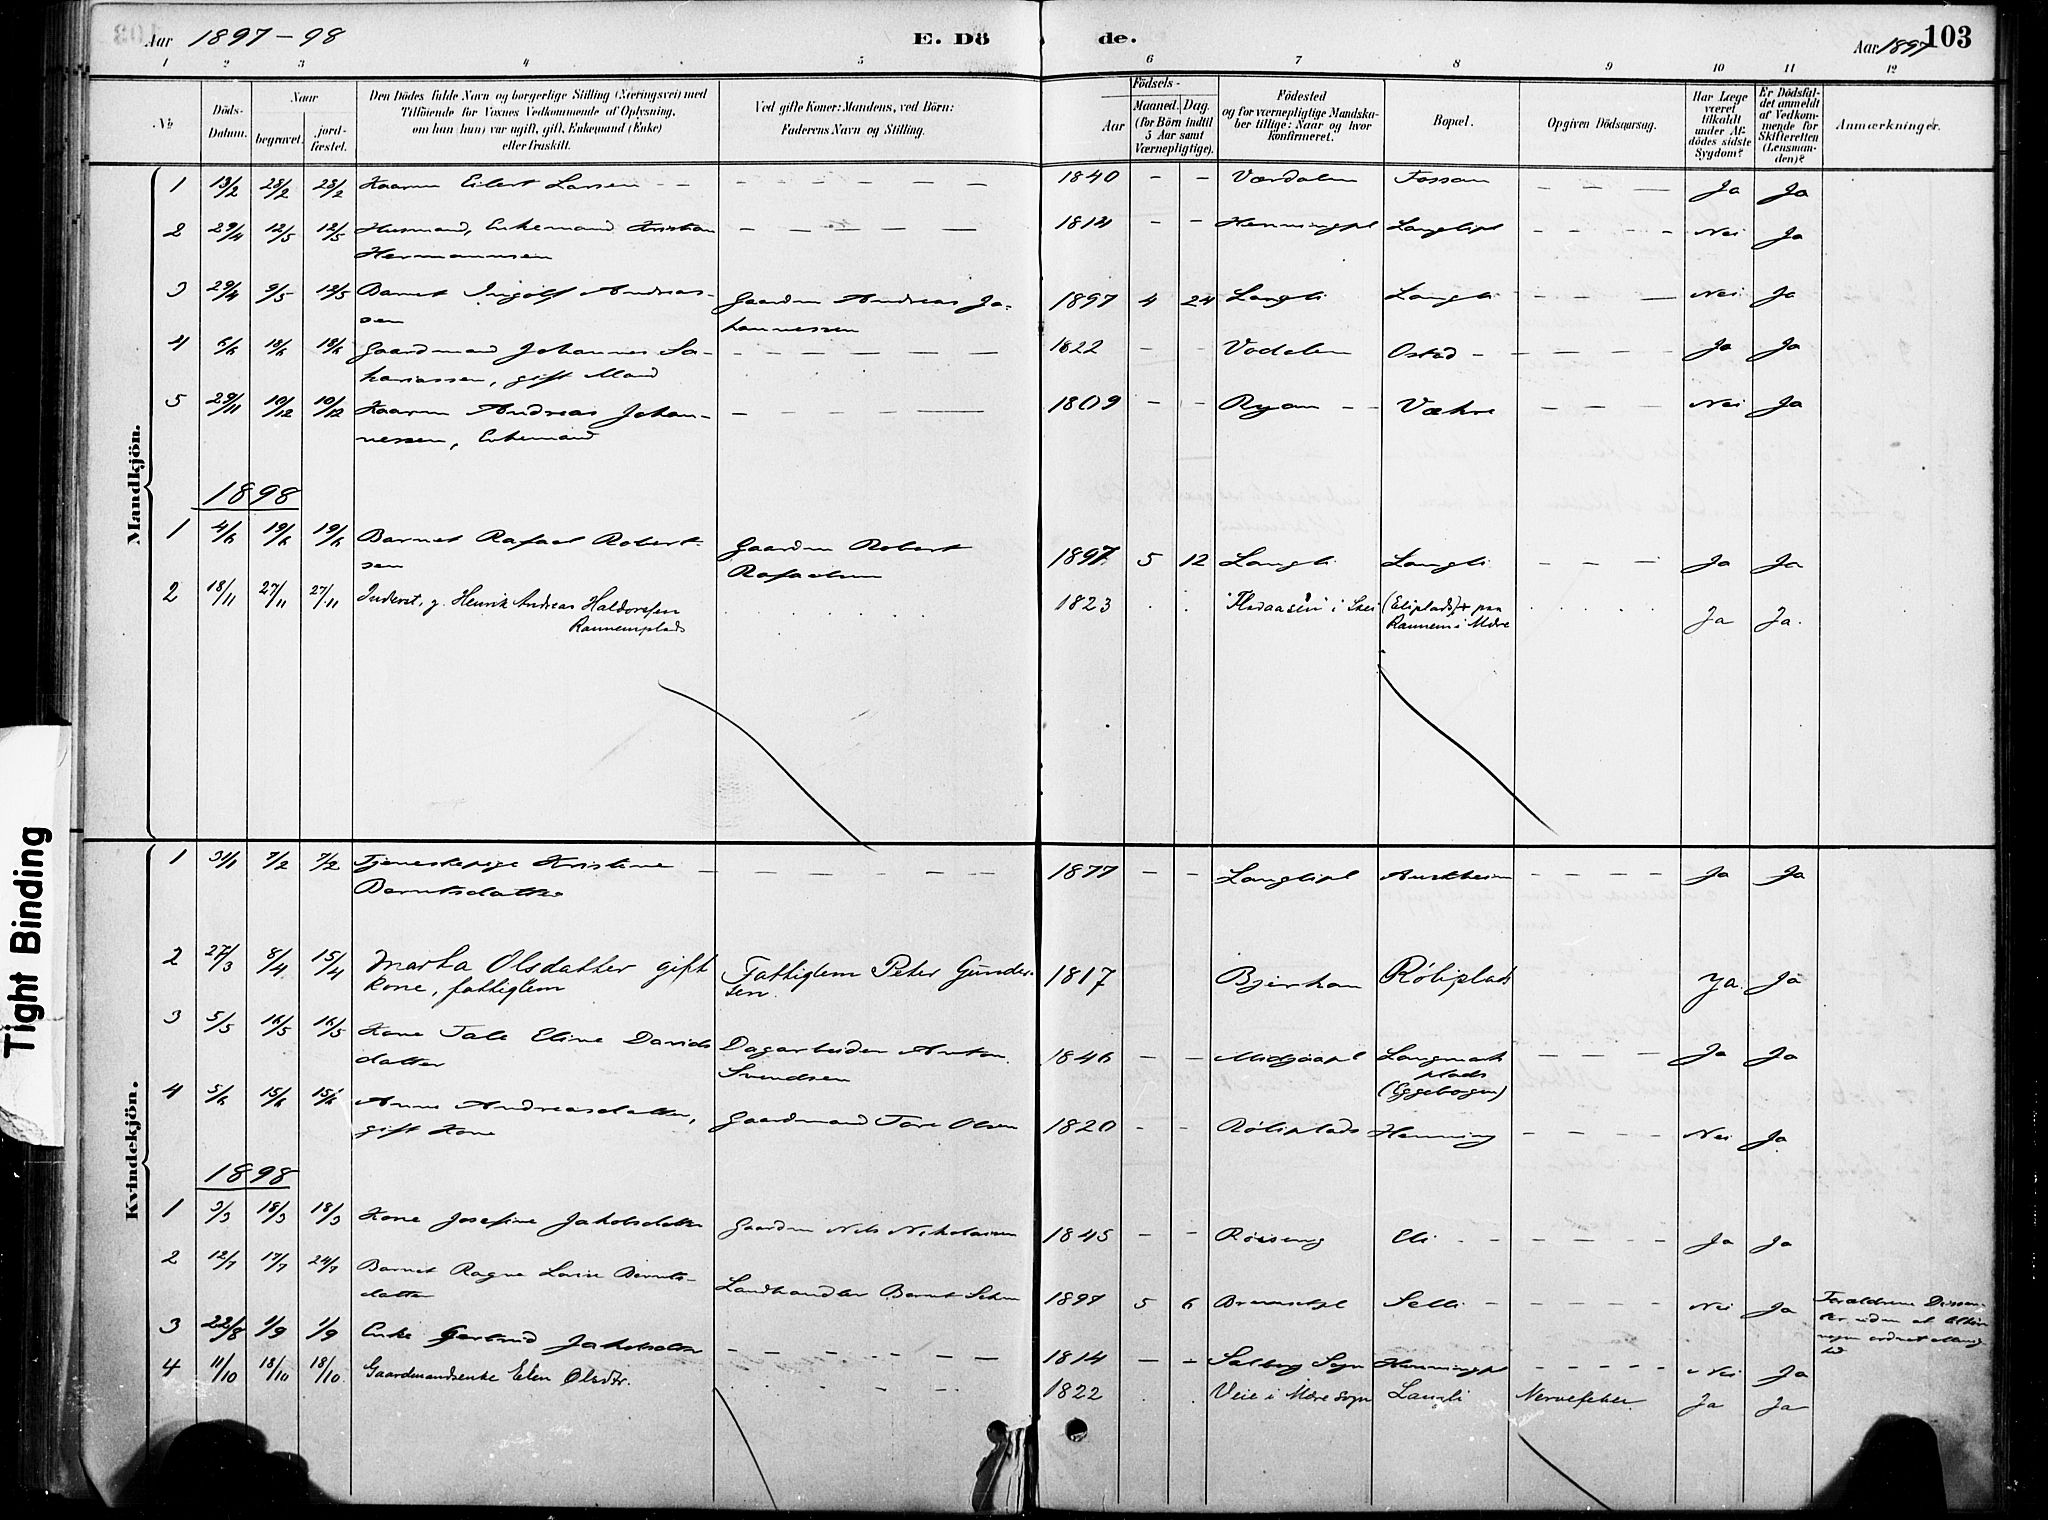 Aar 1897-98
E. Dö
de.
Aar 1897
103
1 2 3 4 5 6 7 8 9 10 11 12
№
Döds-Datum.
Naar
begravet.
jordfæstet.
Den Dödes fulde Navn og borgerlige Stilling (Næringsvei) med
Tilföiende for Voxnes Vedkommende af Oplysning,
om han (hun) var ugift, gift, Enkemand (Enke)
eller fraskilt.
Ved gifte Koner: Mandens, ved Börn:
Faderens Navn og Stilling.
Födsels-
Aar
Maaned. Dag.
(for Börn indtil
5 Aar samt
Værnepligtige).
Födested
og for værnepligtige Mandskaber tillige: Naar og hvor
Konfirmeret.
Bopæl.
Opgiven Dödsaarsag.
Har Læge
været
tilkaldt
under Afdödes sidste
Sygdom?
Er Dödsfaldet anmeldt
af Vedkommende for
Skifteretten
(Lensmanden)?
Anmærkninger.
Mandkjön.
1 13/2 28/2 28/2 Kaarm Eilert Larsen - - 1840 - - Værdalen Fossan - - - Ja Ja
2 29/4 12/5 12/5 Husmand, Enkemand Kristian
Hermannsen 1814 - - Henningpl Langlipl - - - - Nei Ja
3 29/4 9/5 12/5 Barnet Ingolf Andreassen Gaardm Andreas Johannessen 1897 4 24 Langli Langli - - - Nei Ja
4 6/6 18/6 18/6 Gaardmand Johannes Sakariassen, gift Mand 1822 - - Ostad - Ja Ja
5 29/11 10/12 10/12 Kaarm Andreas Johannessen, Enkemand 1809 - - Ryan - - Væhre - - - Nei Ja
1898
1 4/6 19/6 19/6 Barnet Rafael Robertsen Gaardm Robert
Rafaelsen 1897 5 12 Langli Langli - - - Ja Ja
2 18/11 27/11 27/11 Inderst, g. Henrik Andreas Haldorssen
Rannemplads 1823 i Skei (Eliplads) + paa
Rannem i Mære Ja Ja.
Kvindekjön.
1 31/1 7/2 7/2 Tjenestepige Kristine
Berntsdatter 1877 - - Langlipl - - - - Ja Ja
2 27/3 8/4 15/4 Marta Olsdatter gift
kone, fattiglem Fattiglem Peter Gundersen. 1817 Bjerkan Røliplads Ja. Ja
3 5/5 16/5 16/5 Kone Tale Eline Davidsdatter Dagarbeider Anton
Svendsen 1846 - - Midjoapl Langmark
plads
(Eggebogen) - - - Ja Ja
4 5/6 15/6 15/6 Anne Andreasdatter,
gift Kone Gaardmand Tore Olsen 1820 - - Røliplads Henning - - - - Nei Ja
1898
1 9/3 18/3 18/3 Kone Josefine Jakobsdatter Gaardm Nils Nikolaisen 1845 - - Røiseng Eli - - - - Ja Ja
2 12/7 17/7 24/7 Barnet Ragna Lovise Berntsdatter Landhandler Bernt 1897 5 6 Selli - - - - Nei Ja Forældrene
3 22/8 1/9 1/9 Enke Gertrud Jakobsdatter 1814 - - Salberg Sogn Henningpl - - - - Nei Ja
4 11/10 18/10 18/10 Gaardmandsenke Elen Olsdtr. 1822 Veie i Mære sogn Langli Nervefeber. Ja Ja
Tight Binding